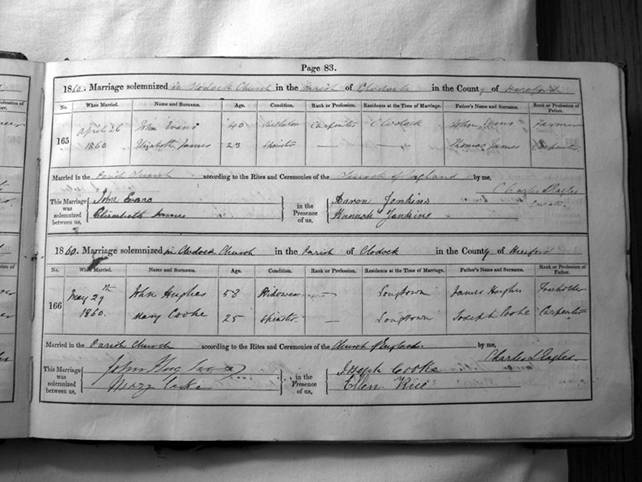 Page 83.
1860. Marriage solemnized in Clodock Church in the Parish of Clodock in the County of Hereford
No. When Married. Name and Surname. Age. Condition. Rank or Profession. Residence at the Time of Marriage. Father's Name and Surname. Rank or Profession of Father.
165 April 26 John Evans 40 Bachelor Carpenter Clodock John Evans Farmer
1860 Elizabeth James 23 Spinster — — Thomas James Carpenter
Married in the Parish Church according to the Rites and Ceremonies of the Church of England by me,
Charles Eagles
Curate
This Marriage was solemnized between us,
John Evans
Elizabeth James
in the Presence of us,
Aaron Jenkins
Hannah Jenkins
1860. Marriage solemnized in Clodock Church in the Parish of Clodock in the County of Hereford
No. When Married. Name and Surname. Age. Condition. Rank or Profession. Residence at the Time of Marriage. Father's Name and Surname. Rank or Profession of Father.
166 May 29th John Hughes 58 Widower — Longtown James Hughes Freeholder
1860. Mary Cooke 25 Spinster — Longtown Joseph Cooke Carpenter
Married in the Parish Church according to the Rites and Ceremonies of the Church of England by me,
Charles Eagles
This Marriage was solemnized between us,
John Hughes
Mary Cooke
in the Presence of us,
Joseph Cooke
Ellen Rice